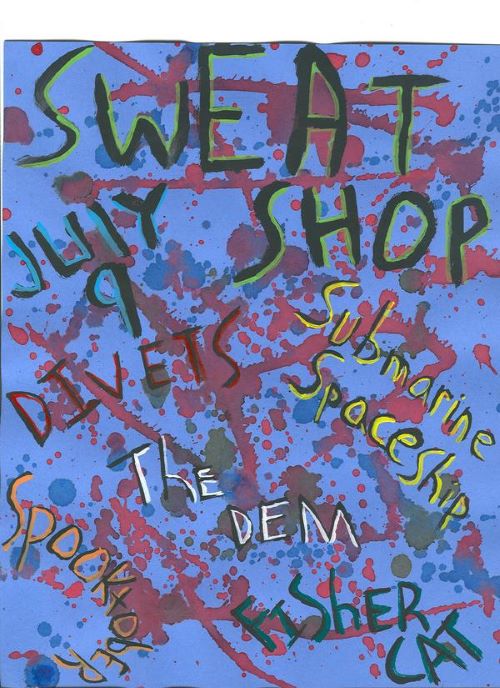 SWEAT
SHOP
JULY
9
DIVETS
Submarine
Spaceship
The
DEM
Spookto
BER
FISHER
CAT